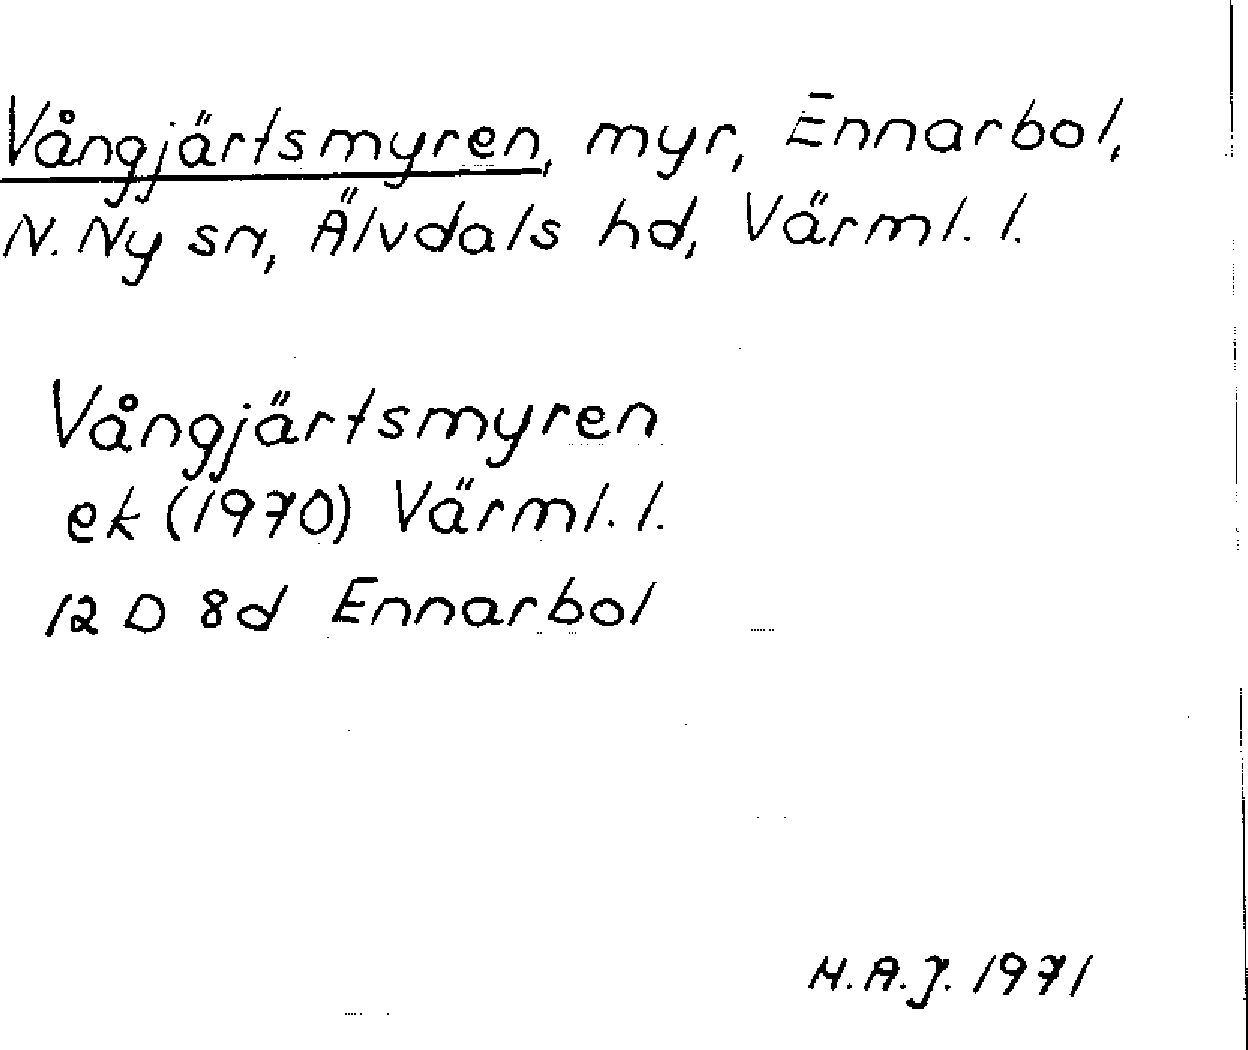 Vångjärtsmyren, myr, Ennarbol,
N. Ny sn, Älvdals hd, Värml. l.
Vångjärtsmyren
ek (1970) Värml. l.
12 D 8d Ennarbol
H.A.J. 1971